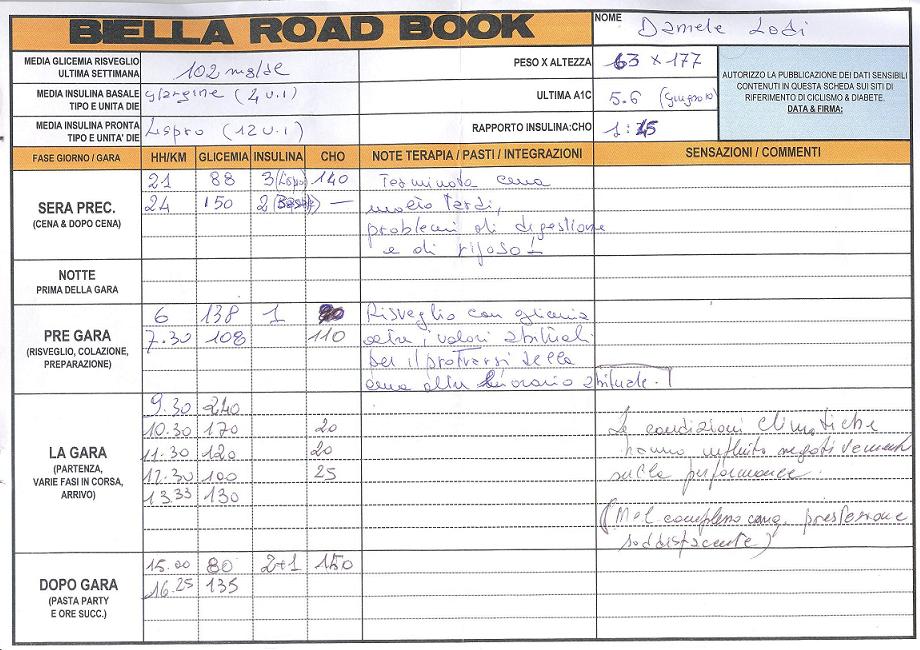 BIELLA ROAD BOOK
NOME Daniele Lodi
MEDIA GLICEMIA RISVEGLIO
ULTIMA SETTIMANA
102 mg/dl
PESO X ALTEZZA 63 x 177
MEDIA INSULINA BASALE
TIPO E UNITA DIE
glargine (4 u.i)
ULTIMA A1C 5.6 (giugno
MEDIA INSULINA PRONTA
TIPO E UNITA' DIE
Lispro (12 u.i)
RAPPORTO INSULINA:CHO 1:15
AUTORIZZO LA PUBBLICAZIONE DEI DATI SENSIBILI
CONTENUTI IN QUESTA SCHEDA SUI SITI DI
RIFERIMENTO DI CICLISMO & DIABETE.
DATA & FIRMA:
FASE GIORNO / GARA HH/KM GLICEMIA INSULINA CHO NOTE TERAPIA / PASTI / INTEGRAZIONI SENSAZIONI / COMMENTI
SERA PREC.
(CENA & DOPO CENA)
21 88 3 (Lispro) 140
24 150 2 (Basale) —
Terminata cena
molto tardi,
problemi di digestione
e di riposo!
NOTTE
PRIMA DELLA GARA
PRE GARA
(RISVEGLIO, COLAZIONE,
PREPARAZIONE)
6 138 1
7.30 108 110
Risveglio con glicemia
oltre i valori abituali
per il protrarsi della
cena oltre l'orario abituale.
LA GARA
(PARTENZA,
VARIE FASI IN CORSA,
ARRIVO)
9.30 240
10.30 170 20
11.30 120 20
12.30 100 25
13.33 130
Le condizioni climatiche
hanno influito negativamente
sulla performance.
(Nel complesso cmq prestazione
soddisfacente)
DOPO GARA
(PASTA PARTY
E ORE SUCC.)
15.00 80 2+1 150
16.25 135